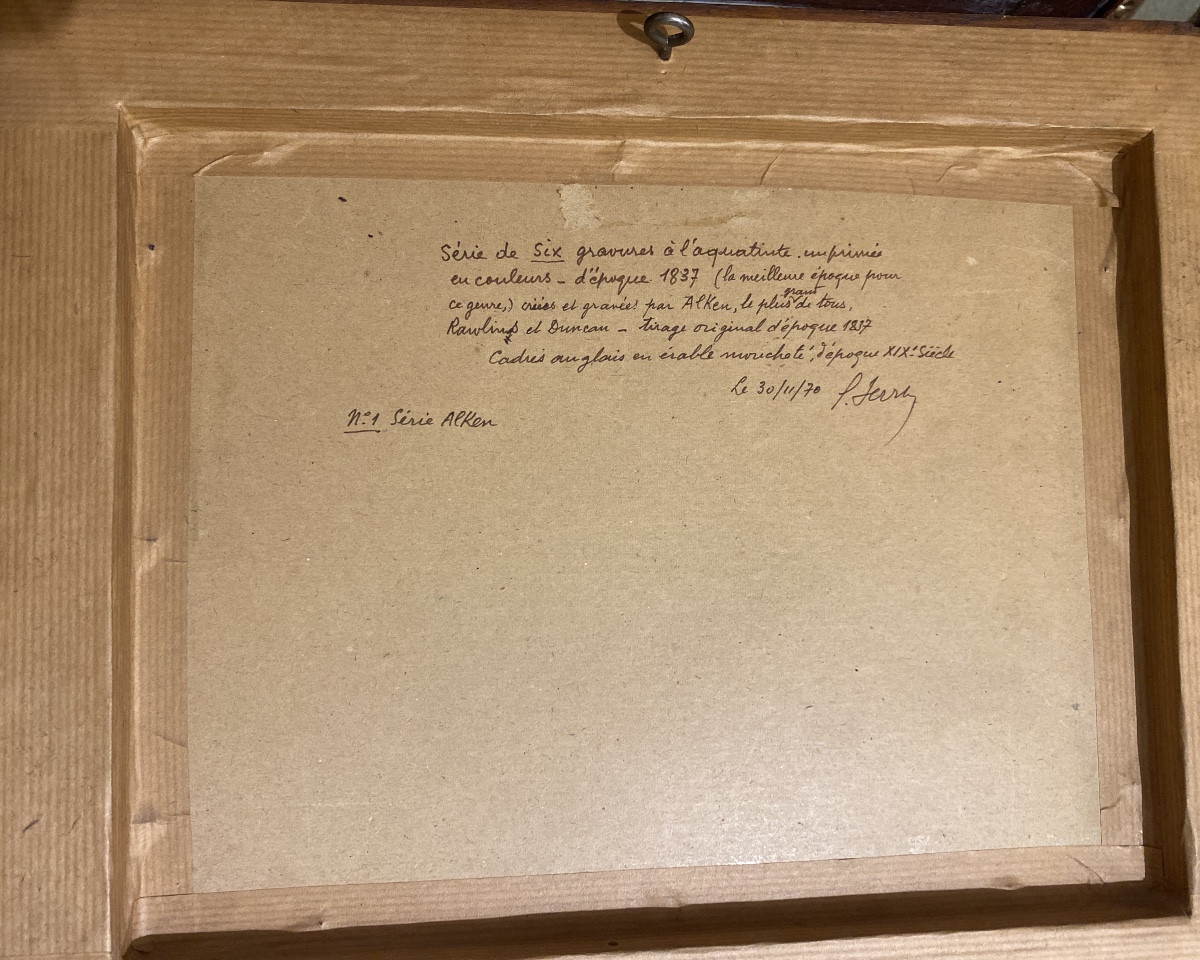 Série de Six gravures à l'aquatinte imprimée
en couleurs - d'époque 1837 (la meilleure époque pour
ce genre,) créées et gravées par Alken, le plus grand de tous,
Rawlins et Duncan - tirage original d'époque 1837
Cadres anglais en érable moucheté, d'époque XIXe Siècle
Le 30/11/70
N°1 Série Alken